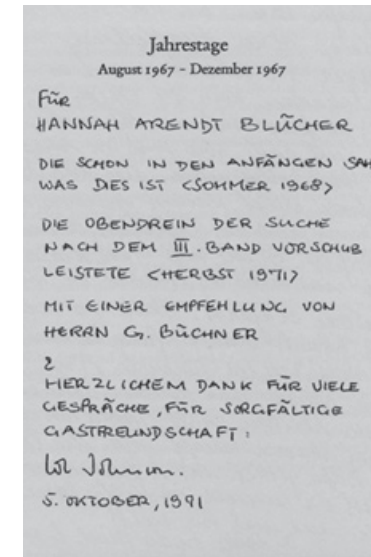 Jahrestage
August 1967 – Dezember 1967
FÜR
HANNAH ARENDT BLÜCHER
DIE SCHON IN DEN ANFÄNGEN SAH
WAS DIES IST <SOMMER 1968>
DIE OBENDREIN DER SUCHE
NACH DEM III. BAND VORSCHUB
LEISTETE <HERBST 1971>
MIT EINER EMPFEHLUNG VON
HERRN G. BÜCHNER
&
HERZLICHEM DANK FÜR VIELE
GESPRÄCHE, FÜR SORGFÄLTIGE
GASTFREUNDSCHAFT:
Johnson.
5. OKTOBER, 1971